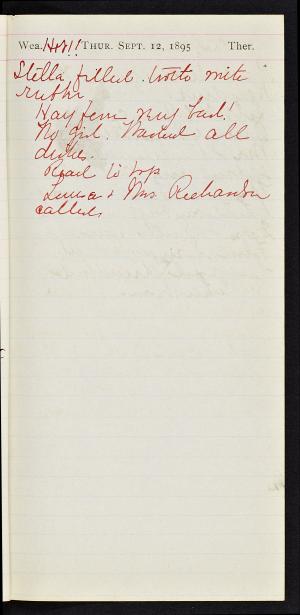 Wea. Hot!! THUR. SEPT. 12, 1895 Ther.
Stella filled tooth with
rubber
Hay fever very bad!
No girl. Washed all
dishes.
Read to
& Mrs Richardson
called